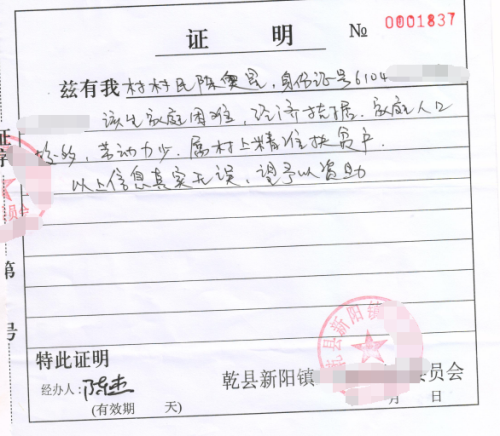 证 明 № 0001837
兹有我村村民陈奥昆,身份证号6104
该生家庭困难,经济拮据.家庭人口
较多,劳动力少.属村上精准扶贫户.
以上信息真实无误,望予以资助
特此证明
经办人:陈杰
乾县新阳镇 委员会
(有效期 天) 月 日
证字
第
号
乾县新阳镇